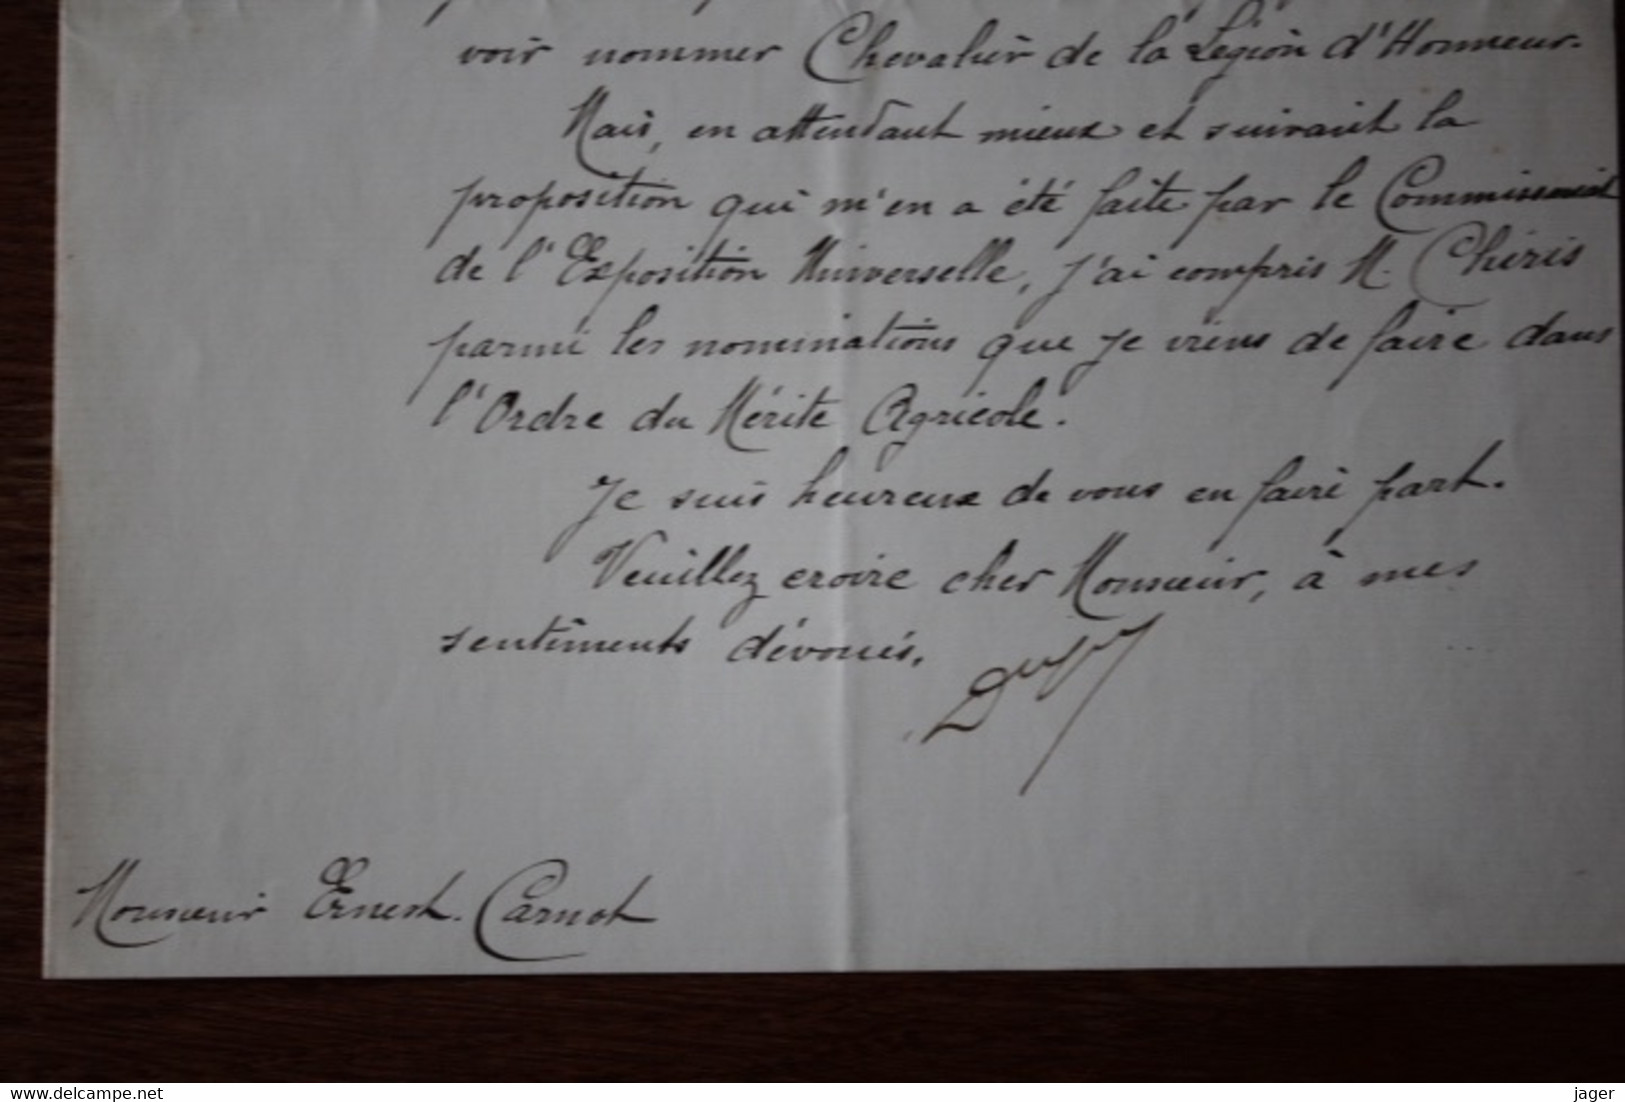 voir nommer Chevalier de la Légion d'Honneur.
Mais, en attendant mieux et suivant la
proposition qui m'en a été faite par le Commissariat
de l'Exposition Universelle, j'ai compris M. Chiris
parmi les nominations que je viens de faire dans
l'Ordre du Mérite Agricole.
Je suis heureux de vous en faire part.
Veuillez croire cher Monsieur, à mes
sentiments dévoués.
Dupuy
Monsieur Ernest Carnot
delcampe.net
jager